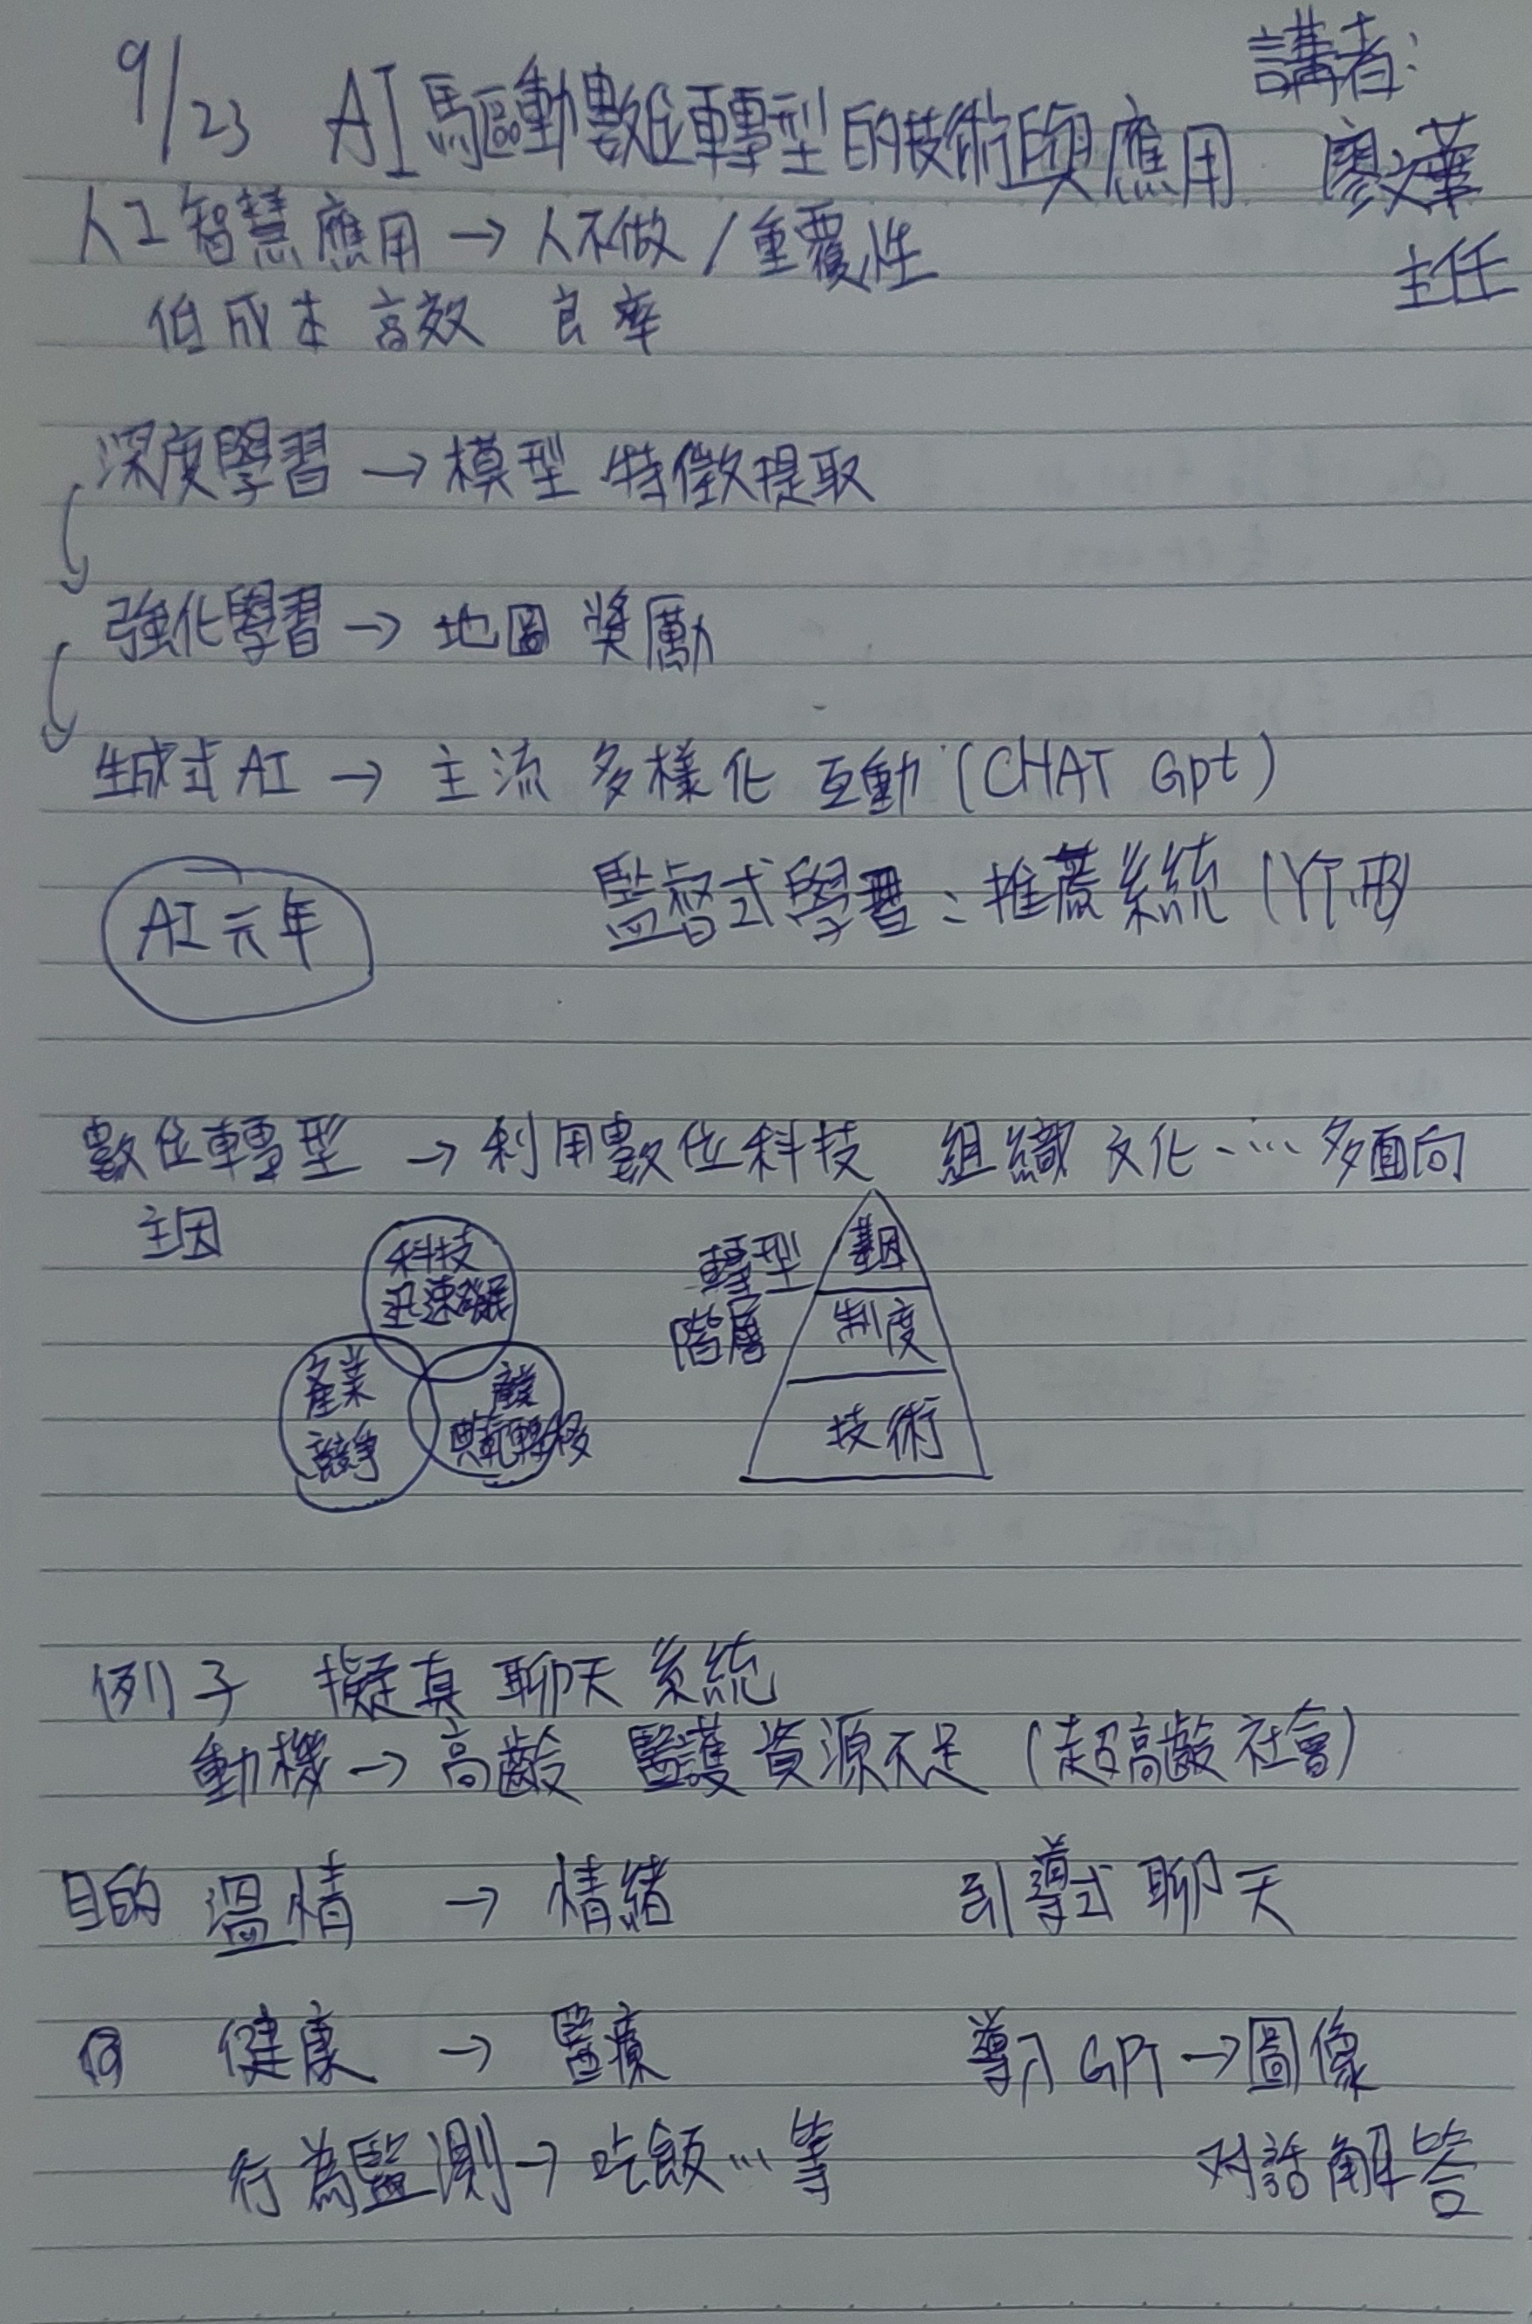 9/23 AI驅動數位轉型的技術與應用
講者:
廖文華
主任
人工智慧應用→人不做/重覆性
低成本 高效 良率
深度學習→模型 特徵提取
強化學習→地圖 獎勵
生成式AI→主流 多樣化 互動(CHAT Gpt)
AI元年
監督式學習:推薦系統(YT,FB)
數位轉型→利用數位科技 組織 文化、… 多面向
主因
科技
迅速發展
產業
競爭
典範轉移
轉型
階層
基因
制度
技術
例子 擬真 聊天系統
動機→高齡 醫護資源不足(超高齡社會)
目的 溫情→情緒 引導式聊天
健康→醫療 導入GPT→圖像
行為監測→吃飯…等 对話解答